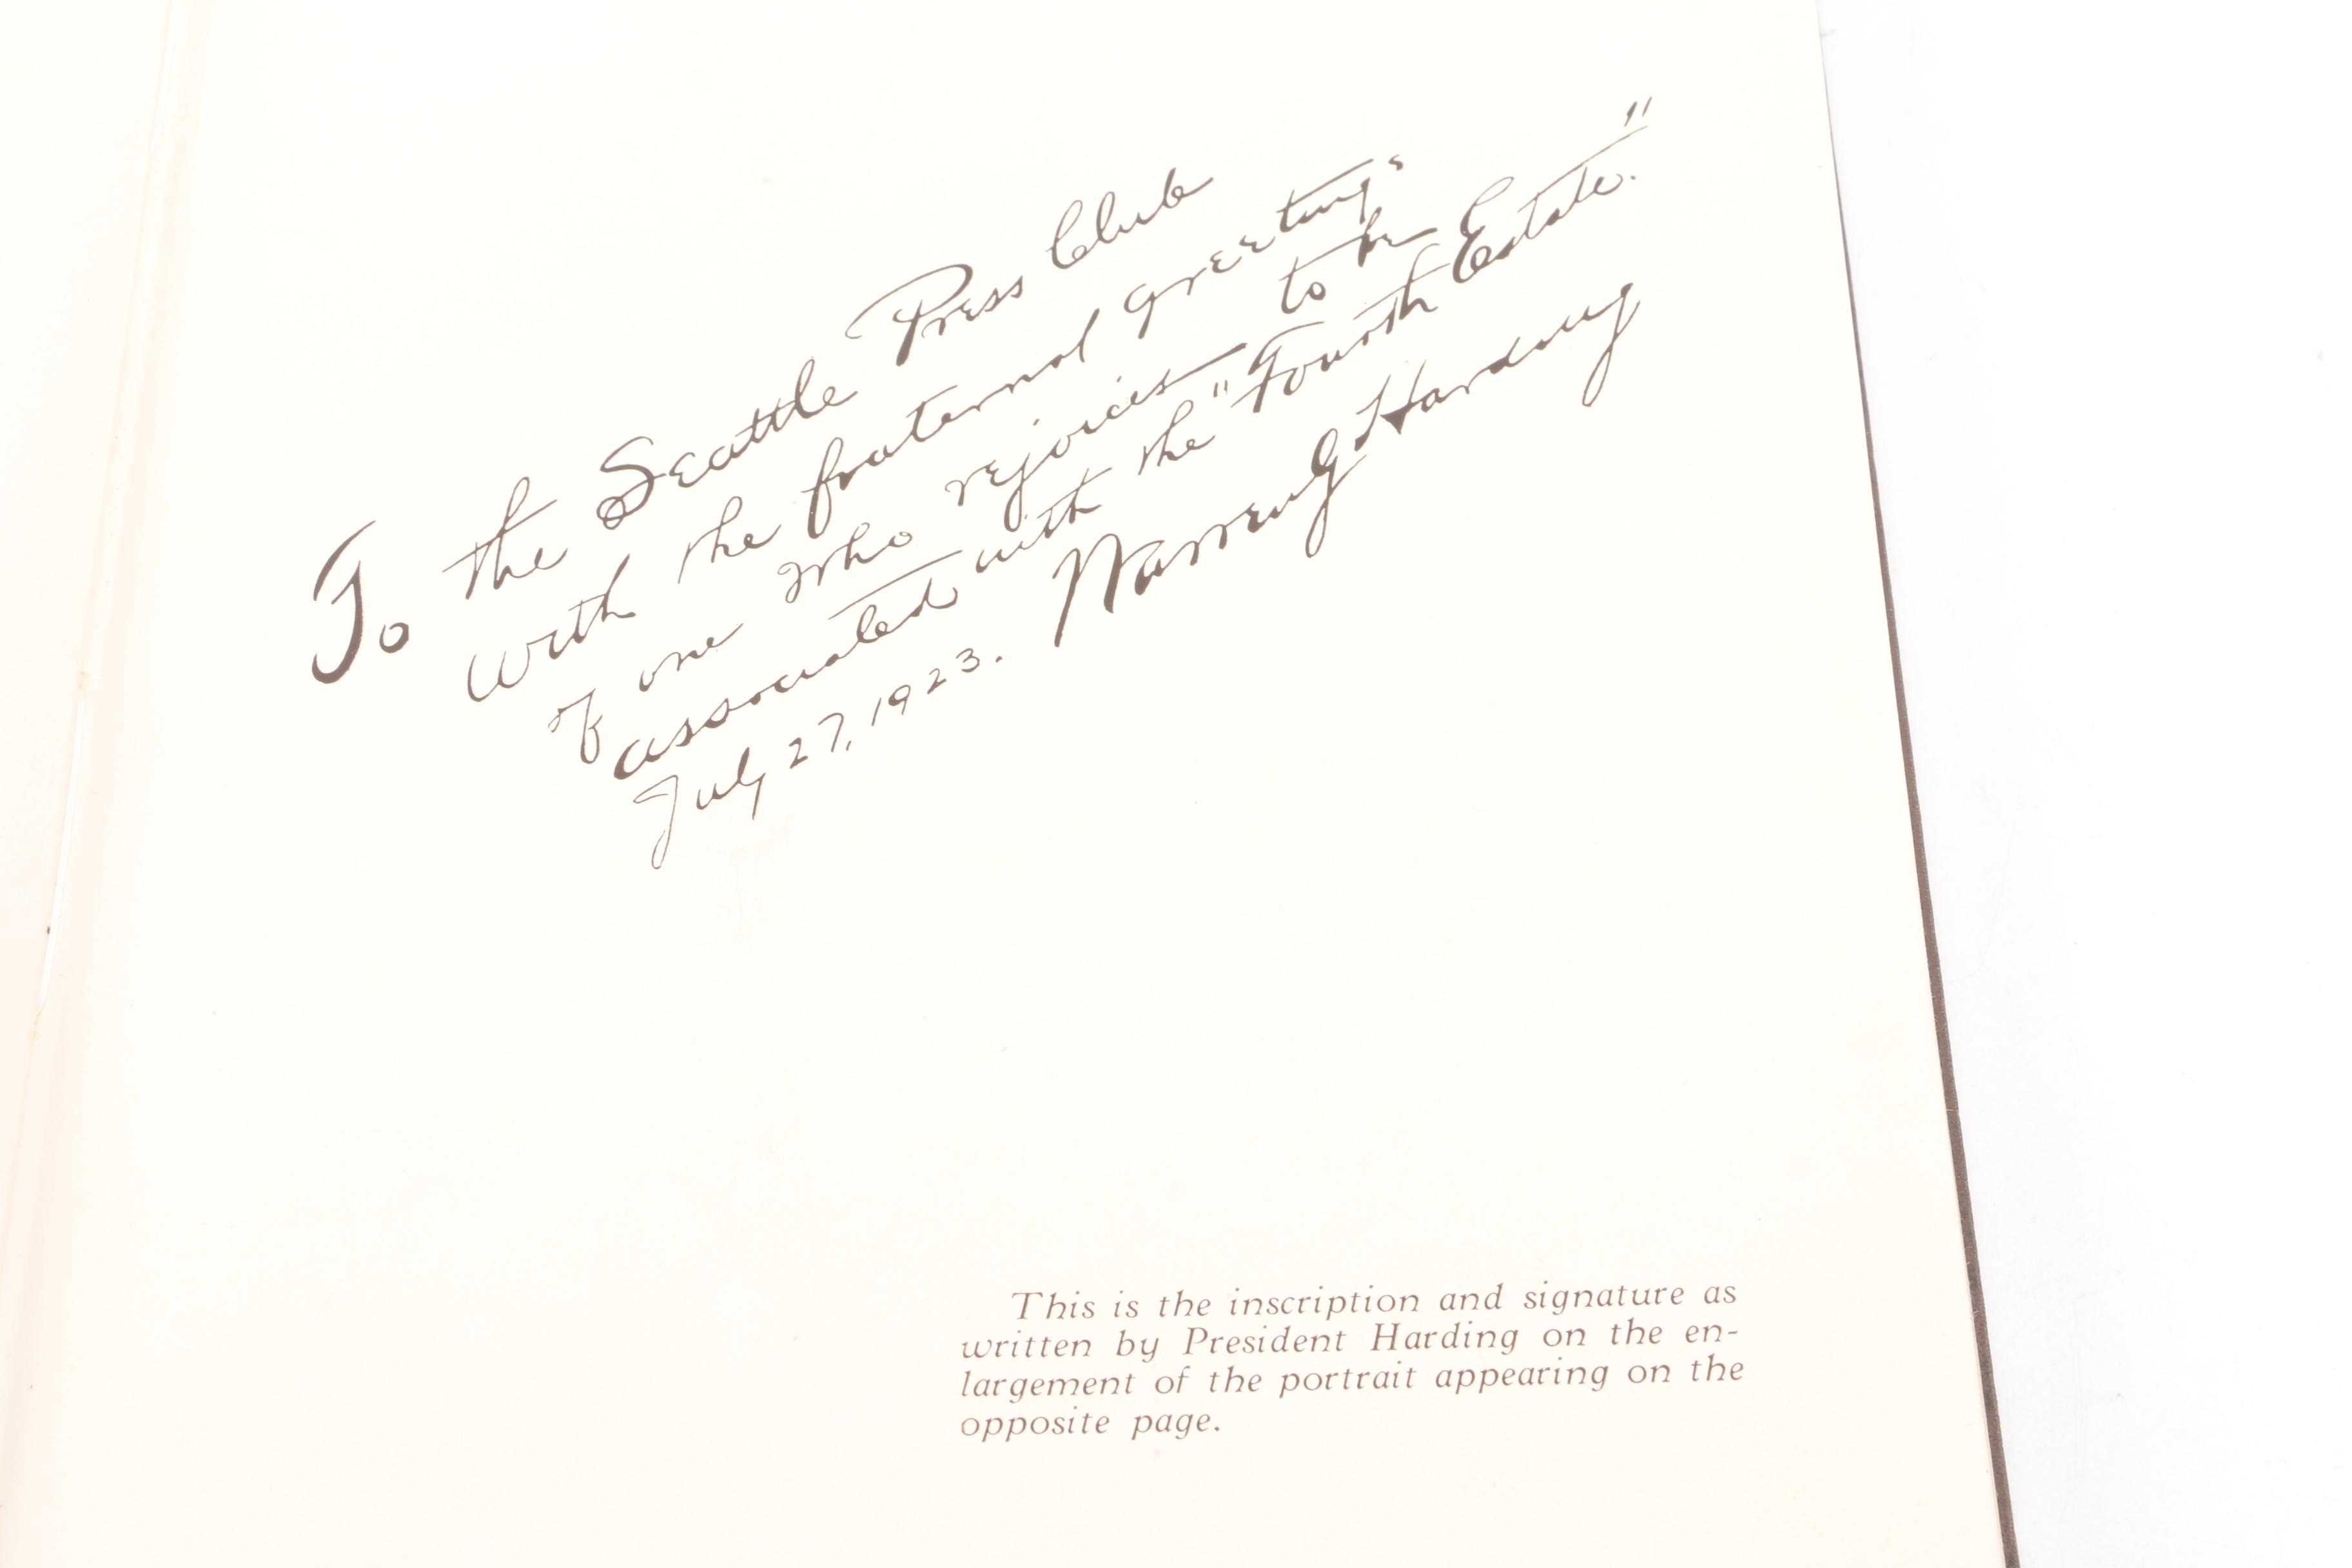 To the Seattle Press Club
With the fraternal greetings
of one who rejoices to be
associated with the "Fourth Estate."
July 27, 1923. Warren G Harding
This is the inscription and signature as
written by President Harding on the en-
largement of the portrait appearing on the
opposite page.